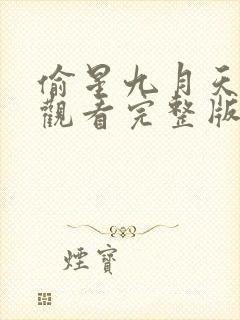 偷星九月天
觀看完整版
煙寶